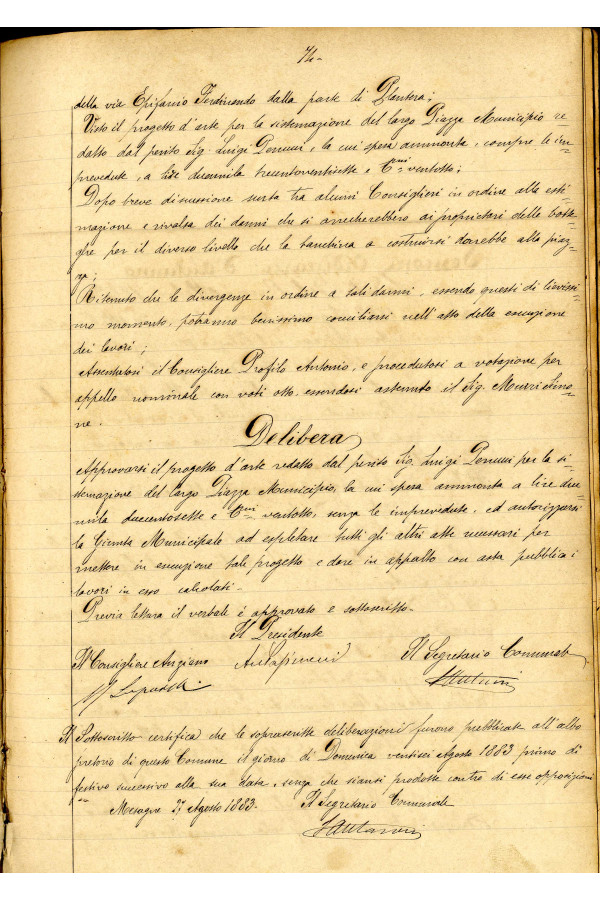 74-
della via Epifanio Ferdinando dalla parte di Plantera;
Visto il progetto d'arte per la sistemazione del largo Piazza Municipio re=
datto dal perito Sig. Luigi Penuzzi, la cui spesa ammonta, compre le im=
prevedute, a lire duemila trecentoventisette e C.mi ventotto;
Dopo breve discussione surta tra alcuni Consiglieri in ordine alla esti=
mazione e rivalsa dei danni che si arrecherebbero ai proprietari delle botte=
ghe per il diverso livello che la bambina a costruirsi darebbe alla piaz=
za;
Ritenuto che le divergenze in ordine a tali danni, essendo questi di lievissi=
mo momento, potranno benissimo conciliarsi nell'atto della esecuzione
dei lavori;
Assentatosi il Consigliere Profilo Antonio, e procedutosi a votazione per
appello nominale con voti otto, essendosi astenuto il Sig. Murri Simo=
ne.
Delibera
Approvarsi il progetto d'arte redatto dal perito Sig. Luigi Penuzzi per la si=
stemazione del largo Piazza Municipio, la cui spesa ammonta a lire due=
mila duecentosette e C.mi ventotto, senza le imprevedute, ed autorizzarsi
la Giunta Municipale ad espletare tutti gli altri atti necessari per
mettere in esecuzione tale progetto e dare in appalto con asta pubblica i
lavori in esso calcolati-
Previa lettura il verbale è approvato e sottoscritto-
Il Presidente
Il Consigliere Anziano
Il Segretario Comunale
Il Sottoscritto certifica che le soprascritte deliberazioni furono pubblicate all'albo
pretorio di questo Comune il giorno di Domenica ventisei Agosto 1883 primo dì
festivo successivo alla sua data, senza che siansi prodotte contro di esse opposizioni
Mesagne 27 Agosto 1883. Il Segretario Comunale